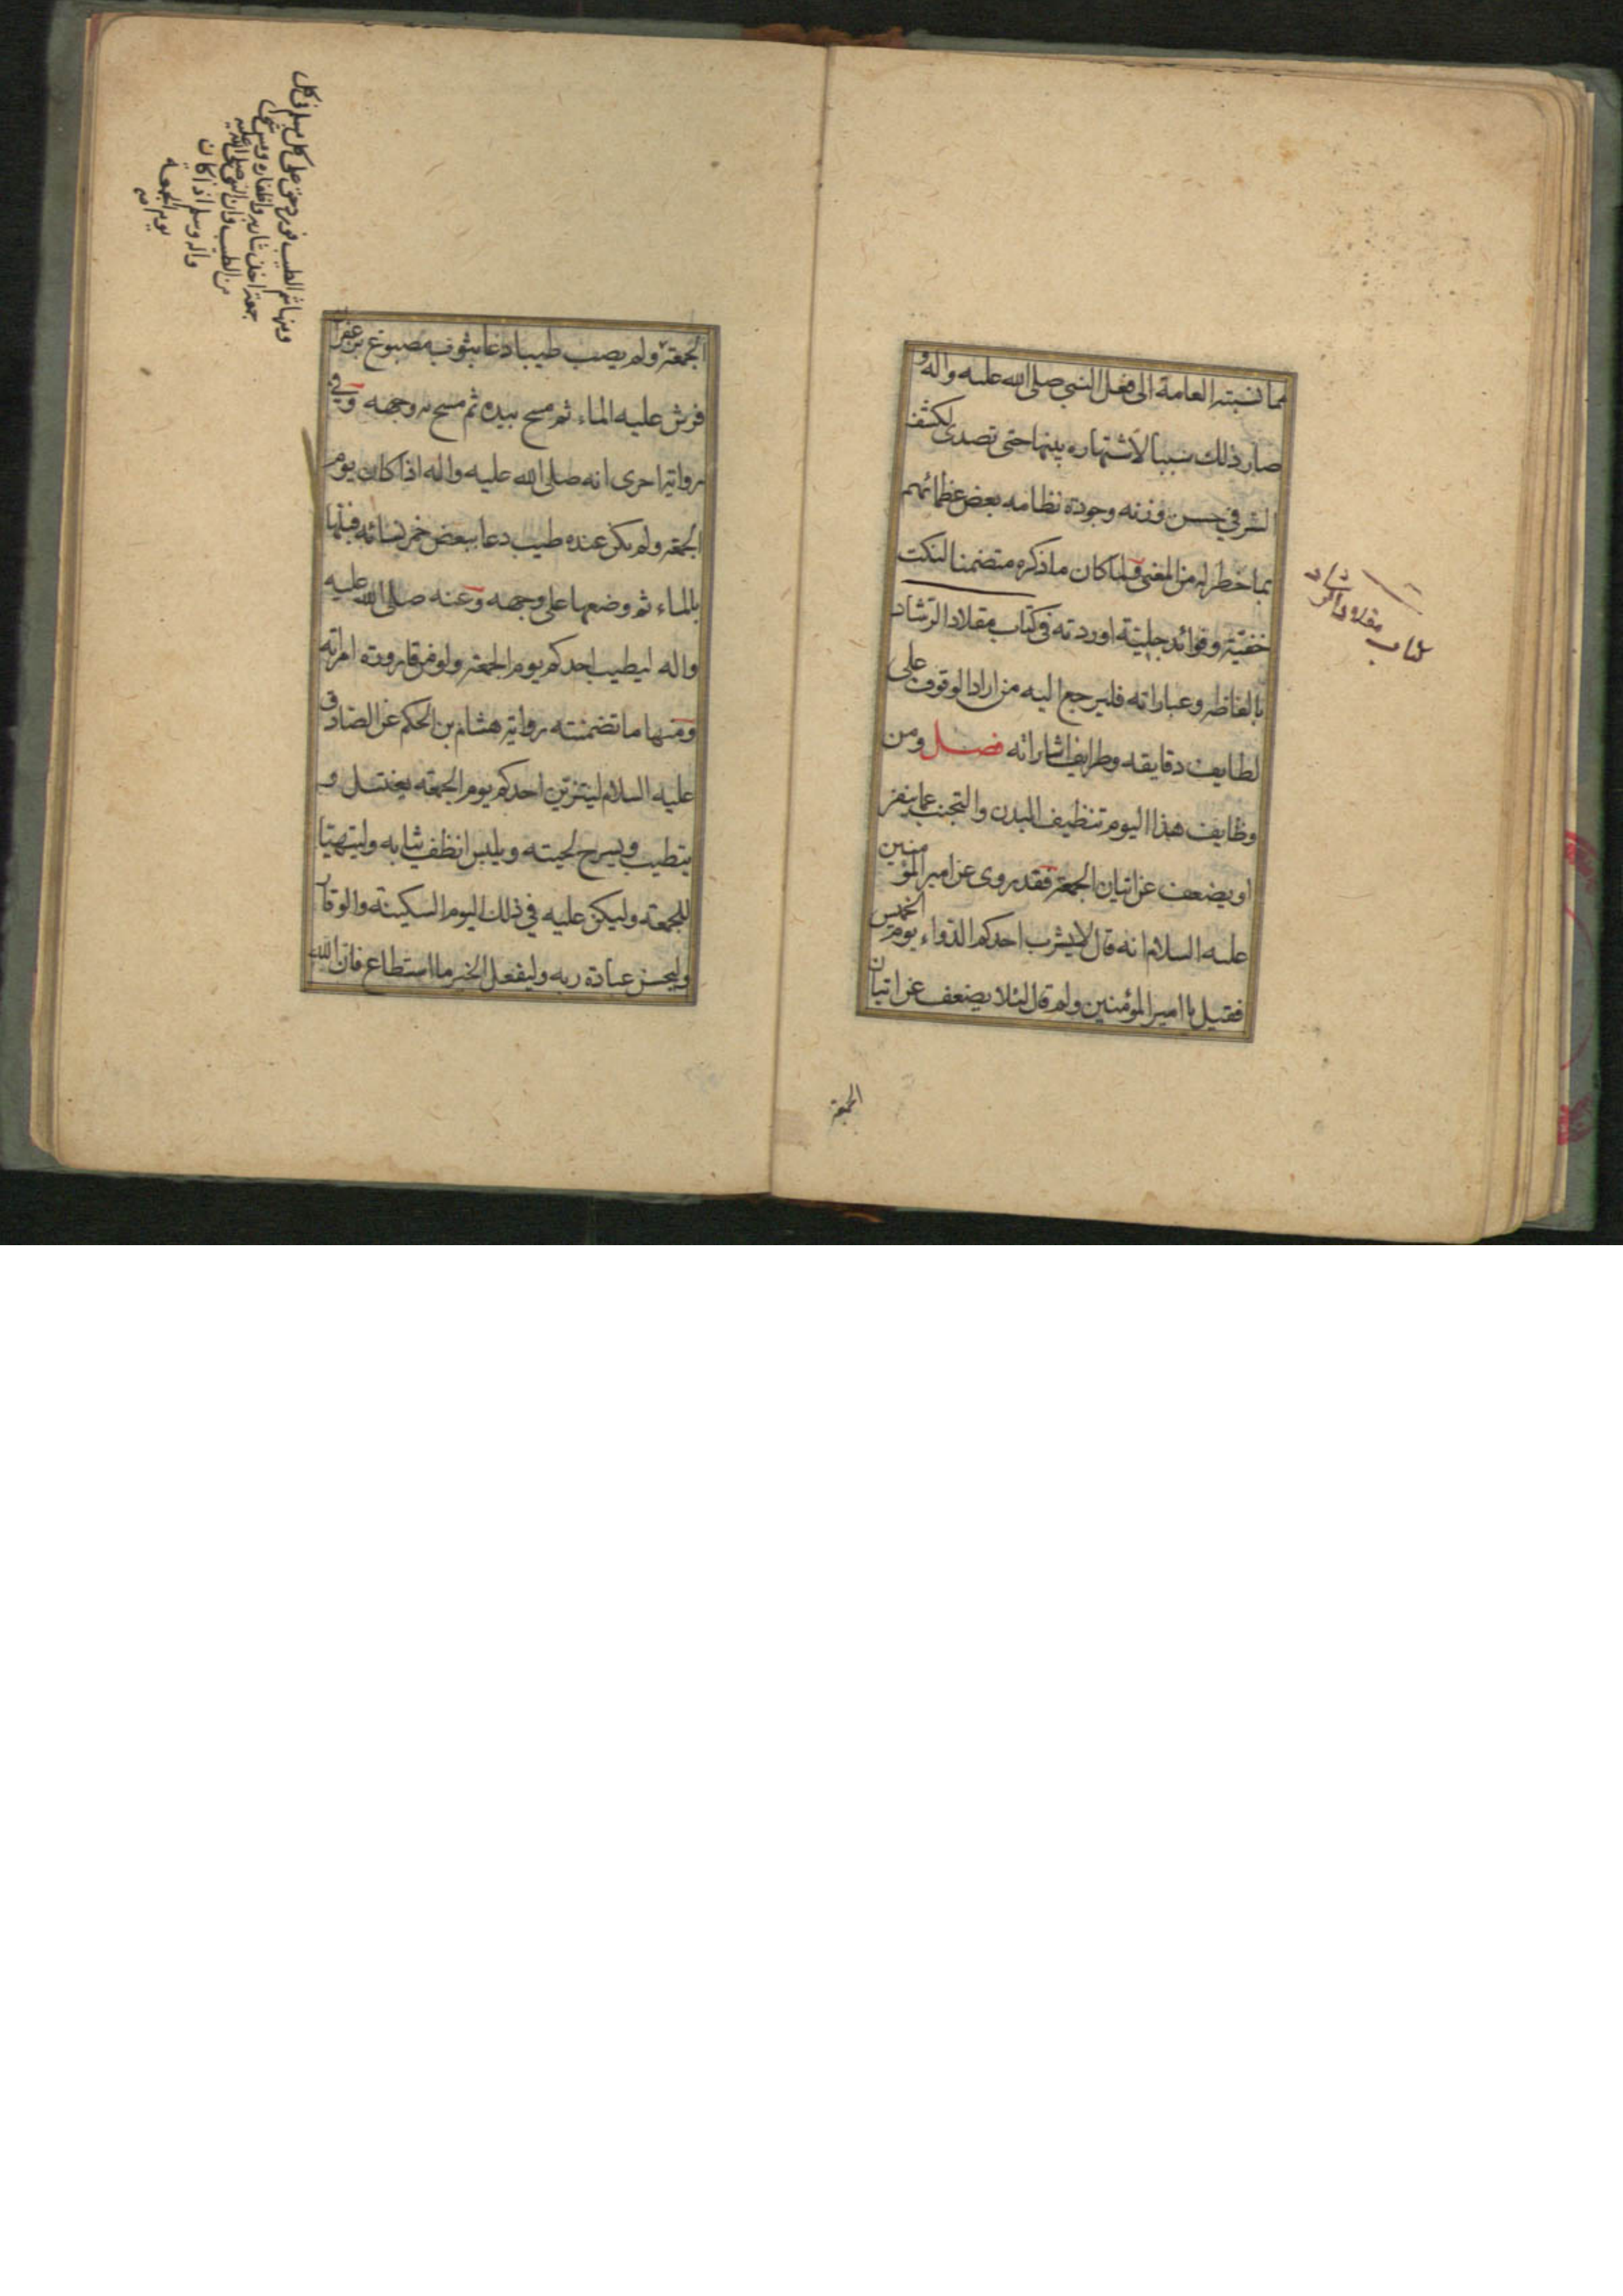 مما نسبته العامة الى فعل النبي صلى الله عليه واله و
صار ذلك سببا لاشتهاره بينها حتى تصدى لكشف
السر في حسن وزنه وجودة نظامه بعض عظمائهم
بما خطر له من المغنى ولما كان ما ذكره متضمنا لنكت
خفيّة وفوائد جليّة اوردته في كتاب مقلاد الرشاد
بالفاظه وعباراته فليرجع اليه من اراد الوقوف على
لطايف دقايقه وطرايف اشاراته فصل ومن
وظايف هذا اليوم تنظيف البدن والتجنب عما ينفر
او يضعف عن اتيان الجمعة فقد روى عن امير المؤمنين
عليه السلام انه قال لا يشرب احدكم الدواء يوم الخميس
فقيل يا امير المؤمنين ولم قال لئلا يضعف عن اتيان
الجمعة
كتاب مقلاد الرشاد
الجمعة ولم يصب طيبا دعا بثوب مصبوغ بزعفران
فرش عليه الماء ثم مسح بيده ثم مسح به وجهه وفي
رواية اخرى انه صلى الله عليه واله اذا كان يوم
الجمعة ولم يكن عنده طيب دعا ببعض خمر نسائه فبلها
بالماء ثم وضعها على وجهه وعنه صلى الله عليه
واله ليطيب احدكم يوم الجمعة ولو من قارورة امراته
ومنها ما تضمنته رواية هشام بن الحكم عن الصادق
عليه السلام ليتزين احدكم يوم الجمعة يغتسل و
يتطيب ويسرح لحيته ويلبس انظف ثيابه وليتهيا
للجمعة وليكن عليه في ذلك اليوم السكينة والوقار
وليحسن عبادة ربه وليفعل الخير ما استطاع فان الله
ومنها شم الطيب حق على كل مسلم في كل
جمعة اخذ شاربه واظفاره ومس شئ
من الطيب وان النبي صلى الله عليه
واله وسلم اذا كان
يوم الجمعة